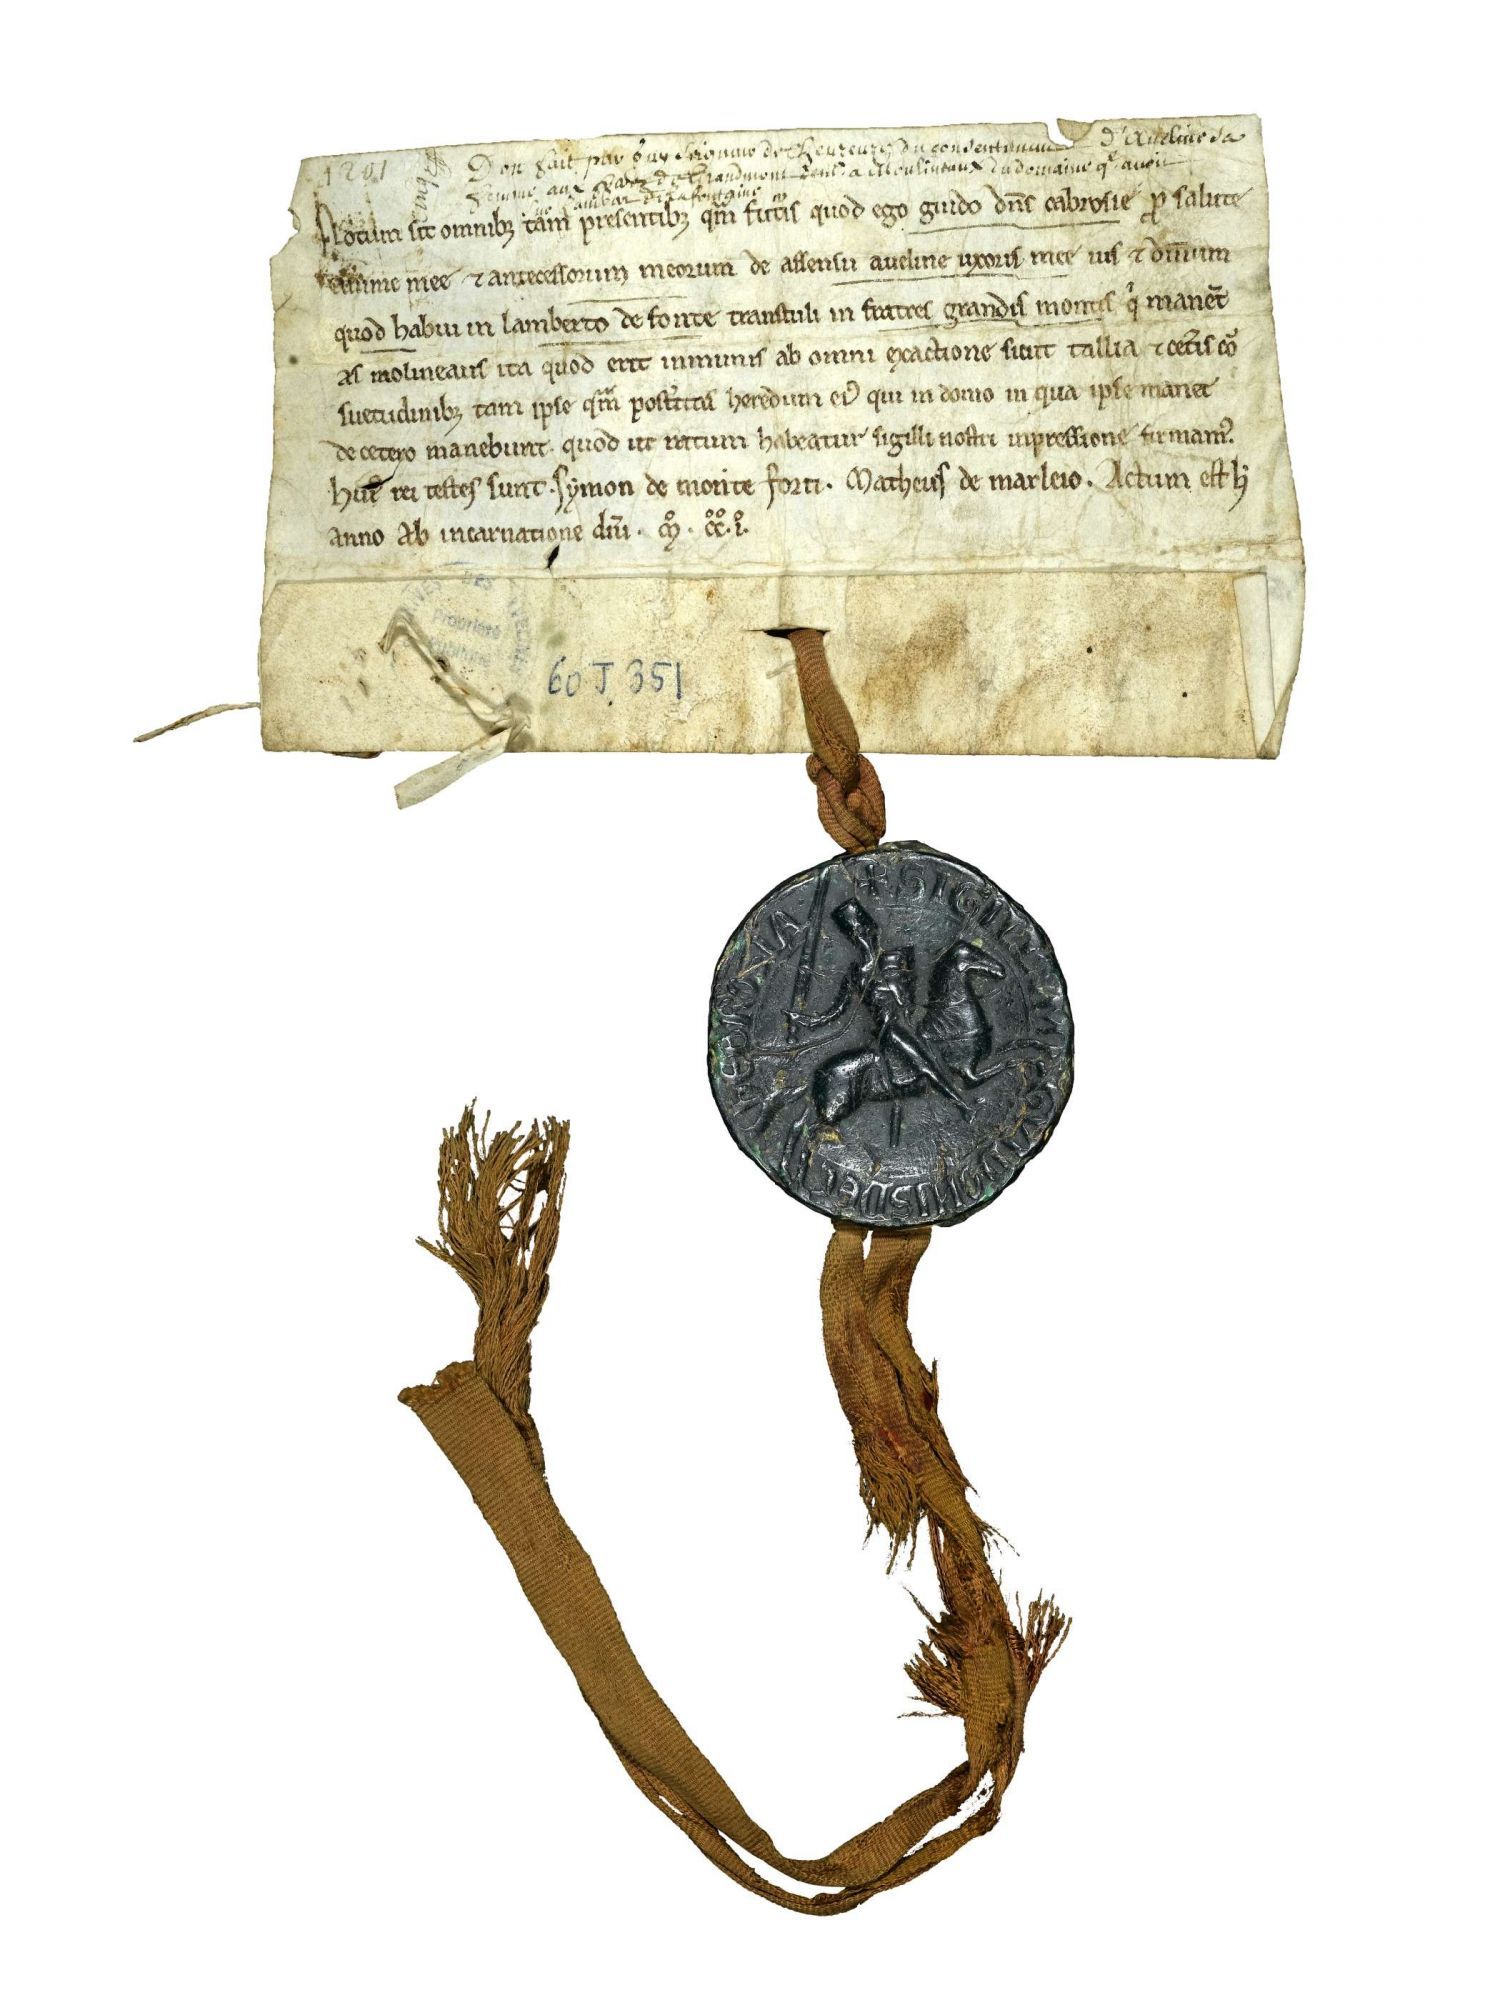 1201
Don fait par Guy de Chevreuse du consentement d'Aveline sa
femme aux de Grandmont a Moulineaux du domaine q avoit
sur Lambert de la fontaine
Notum sit omnibꝫ tam presentibꝫ qm̄ futuris quod ego guido dn̄s cabrosie p salute
anime mee et antecessorum meorum de assensu aveline uxoris mee ius et dn̄ium
quod habui in lamberto de fonte transtuli in fratres grandis montis qi manēt
as molineaus ita quod erit inmunis ab omni exactione sicut tallia et cet̄is cō
suetudinibꝫ tam ipse qm̄ post̄itas heredum ei9 qui in domo in qua ipse manet
de cetero manebunt. quod ut ratum habeatur sigilli nostri inpressione firmam9.
Hui9 rei testes sunt. symon de monte forti. Matheus de marleio. Actum est h
anno ab incarnatione dn̄i. mo. cco. io.
DES YVELINES
Propriété
publique
60 J 351
+ SIGILLUM GUIDONIS DE